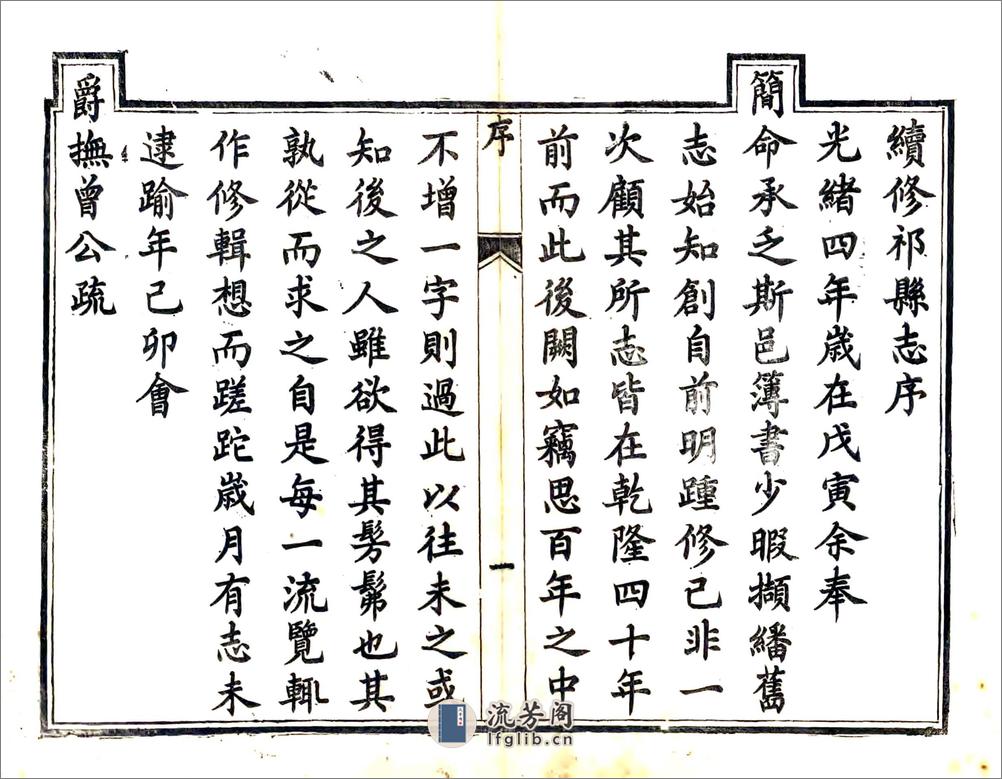 續修祁縣志序
光緒四年歲在戊寅余奉
簡命承乏斯邑簿書少暇擷繙舊
志始知創自前明踵修已非一
次顧其所志皆在乾隆四十年
前而此後闕如竊思百年之中
序
一
不增一字則過此以往未之或
知後之人雖欲得其髣髴也其
孰從而求之自是每一流覽輒
作修輯想而蹉跎歲月有志未
逮踰年己卯會
爵撫曾公疏
流芳阁
lfglib.cn